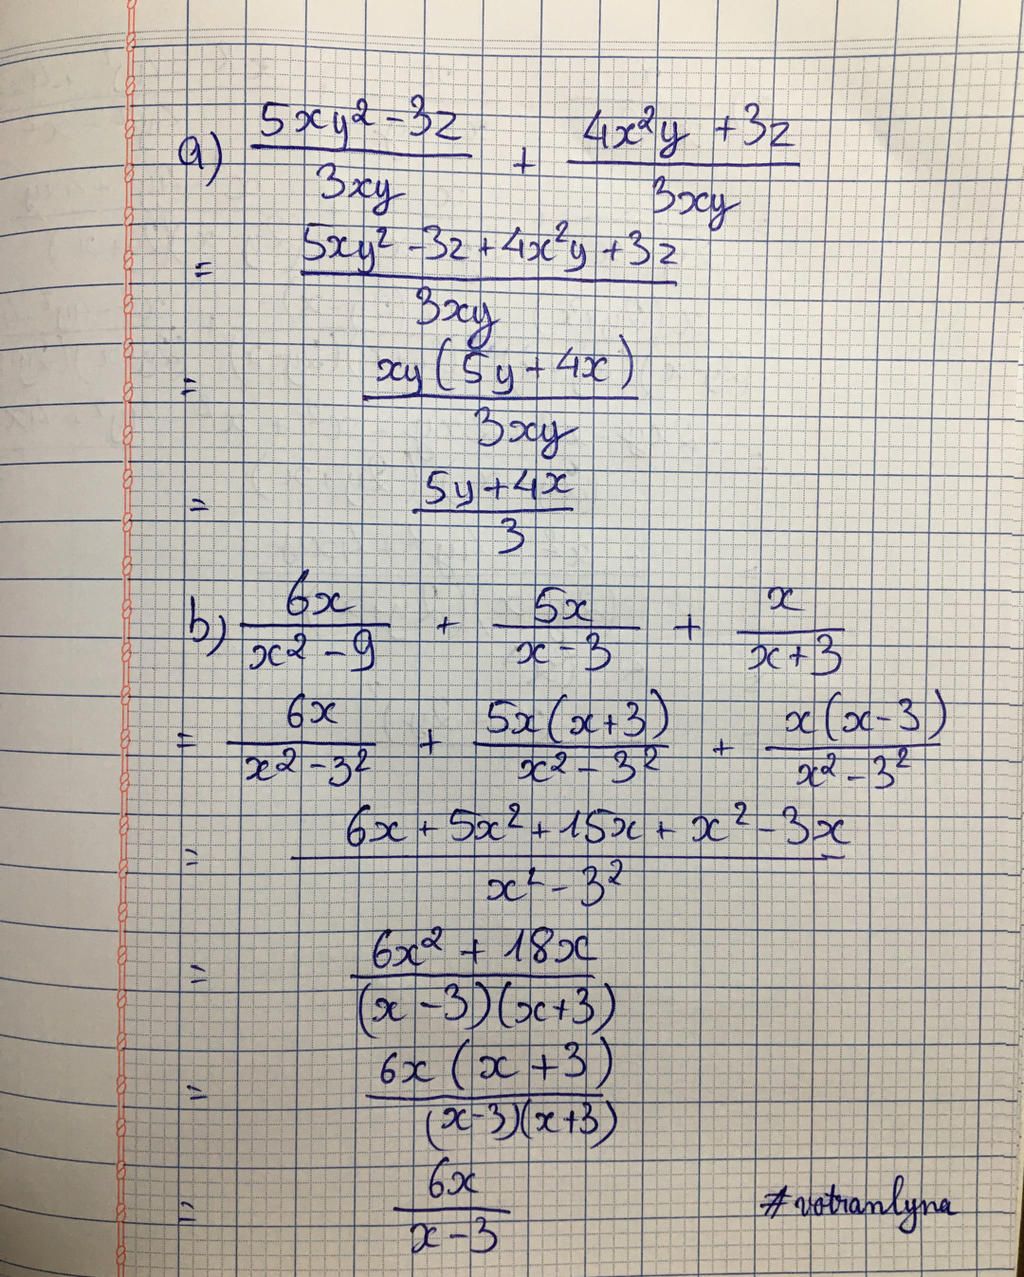 a) (5xy² - 3z)/(3xy) + (4x²y + 3z)/(3xy)
= (5xy² - 3z + 4x²y + 3z)/(3xy)
= (xy(5y + 4x))/(3xy)
= (5y + 4x)/3
b) 6x/(x² - 9) + 5x/(x - 3) + x/(x + 3)
= 6x/(x² - 3²) + 5x(x + 3)/(x² - 3²) + x(x - 3)/(x² - 3²)
= (6x + 5x² + 15x + x² - 3x)/(x² - 3²)
= (6x² + 18x)/((x - 3)(x + 3))
= (6x(x + 3))/((x - 3)(x + 3))
= 6x/(x - 3)
#votranlyna